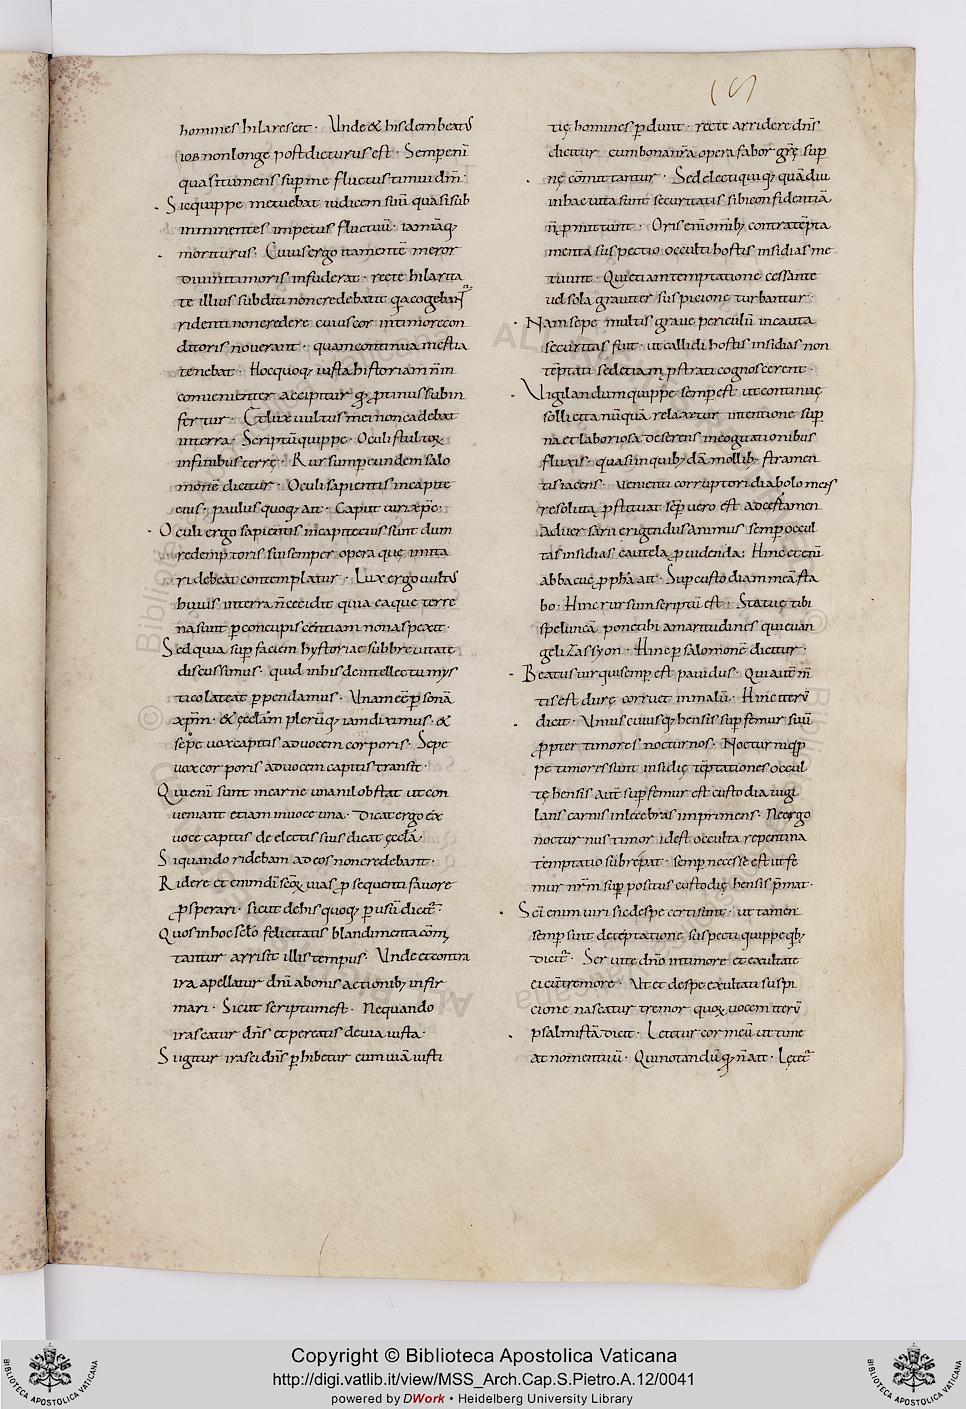 homines hilarescit · Unde & hisdem beatus
iob non longe post dicturus est · Semp enī
quasi tumens sup me fluctus timui dm̄ ·
Sic quippe metuebat iudicem suū quasi sub
inminentes impetus fluctuū · iam iāq;
moriturus · Cuius ergo ita mentē meror
diuini timoris infuderat · recte hilarita
te illius subditi non credebant
ridenti non credere cuius cor in timore con
ditoris nouerant · quam continua mestia
tenebat · Hoc quoq; iuxta historiam n̄ in
conuenienter accipitur qđ ptinus subin
fertur · Et lux uultus mei non cadebat
in terra · Scriptū quippe · Oculi stultoꝝ
in finibus terrę · Rursum p eundem salo
monē dicitur · Oculi sapientis in capite
eius · paulus quoq; ait · Caput uiri xp̄c ·
Oculi ergo sapientis in capite eius sunt dum
redemptoris sui semper opera quę imita
ri debeat contemplatur · Lux ergo uultus
huius in terra n̄ cecidit quia ea que terre
na sunt p concupiscentiam non aspexit ·
Sed quia sup faciem hystoriae sub breuitate
discussimus · quid in his de intellectu mys
tico lateat ppendamus · Unam eē psonā
xp̄m · & ęcclam plerūq; iam diximus · &
sepe uox capitis ad uocem corporis · Sepe
uox corporis ad uocem capitis transit ·
Qui enī sunt in carne una nil obstat ut con
ueniant etiam in uoce una · Dicat ergo ex
uoce capitis de electis suis dicat ęccla ·
Siquando ridebam ad eos non credebant ·
Ridere et enim dī scoꝝ uias psequenti fauore
psperari · sicut de his quoq; p usū dicit̄ ·
Quos in hoc sclo felicitatis blandimenta comi
tantur arrisit illis tempus · Unde et contra
ira apellatur dnī a bonis actionib; infir
mari · Sicut scriptum est · Nequando
irascatur dn̄s et pereatis de uia iusta ·
Si igitur irasci dn̄s phibetur cum uiā iusti
tię homines pdunt · recte arridere dn̄s
dicitur cum bona nr̄a opera fabor grę sup
nę cōmittantur · Sed electi quiq; quādiu
in hac uita sunt securitatis sibi confidentiā
n̄ pmittunt · Oris enī omib; contra tēpta
menta suspectio occulti hostis insidias me
tuunt · Qui etiam temptatione cessante
uel sola grauiter suspicione turbantur ·
Nam sepe multis graue periculū incauta
securitas fuit · ut callidi hostis insidias non
tēptati sed etiam pstrati cognoscerent ·
Uigilandum quippe semp est ut continuę
sollicita nūquā relaxetur intentione sup
na et laboriosa deserens in cogitationibus
fluxis · quasi in quib; dā mollib; stramen
tis iacens · uenienti corruptori diabolo mens
resoluta pstituat semp uero est ad certamen
aduersarii erigendus animus semp occul
tas insidias cautela puidenda · Hinc et enī
abbacuc ppha ait · Sup custodiam meā sta
bo · Hinc rursum scriptū est · Statuę tibi
speluncā pone tibi amaritudines qui euan
gelizas syon · Hinc p salomonē dicitur ·
Beatus uir qui semp est pauidus · Qui autē m̄
tis est durę corruet in malū · Hinc iterū
dicit · Unius cuiusq; hensis sup femur suū
ppter timores nocturnos · Nocturni qpp
pe timores sunt insidię tēptationes occul
tę hensis aut̄ sup femur est custodia uigi
lans carnis inlecebras imprimens · Ne ergo
nocturnus timor id est occulta repentina
temptatio subrepat · semp necesse est ut fe
mur nr̄m sup positus custodię hensis pmat ·
Sc̄i enim uiri sic de spe certi sunt · ut tamen
semp sint de tēptatione suspecti quippe qb;
dicit̄ · Seruite dno in timore et exultate
ei cū tremore · Ut et de spe exultati suspi
cione nascatur tremor quoꝝ uocem iterū
psalmista dicit · Letetur cor meū ut time
at nomen tuū · Qui notandū qđ n̄ ait · Lętet̄
Copyright © Biblioteca Apostolica Vaticana
http://digi.vatlib.it/view/MSS_Arch.Cap.S.Pietro.A.12/0041
powered by DWork • Heidelberg University Library